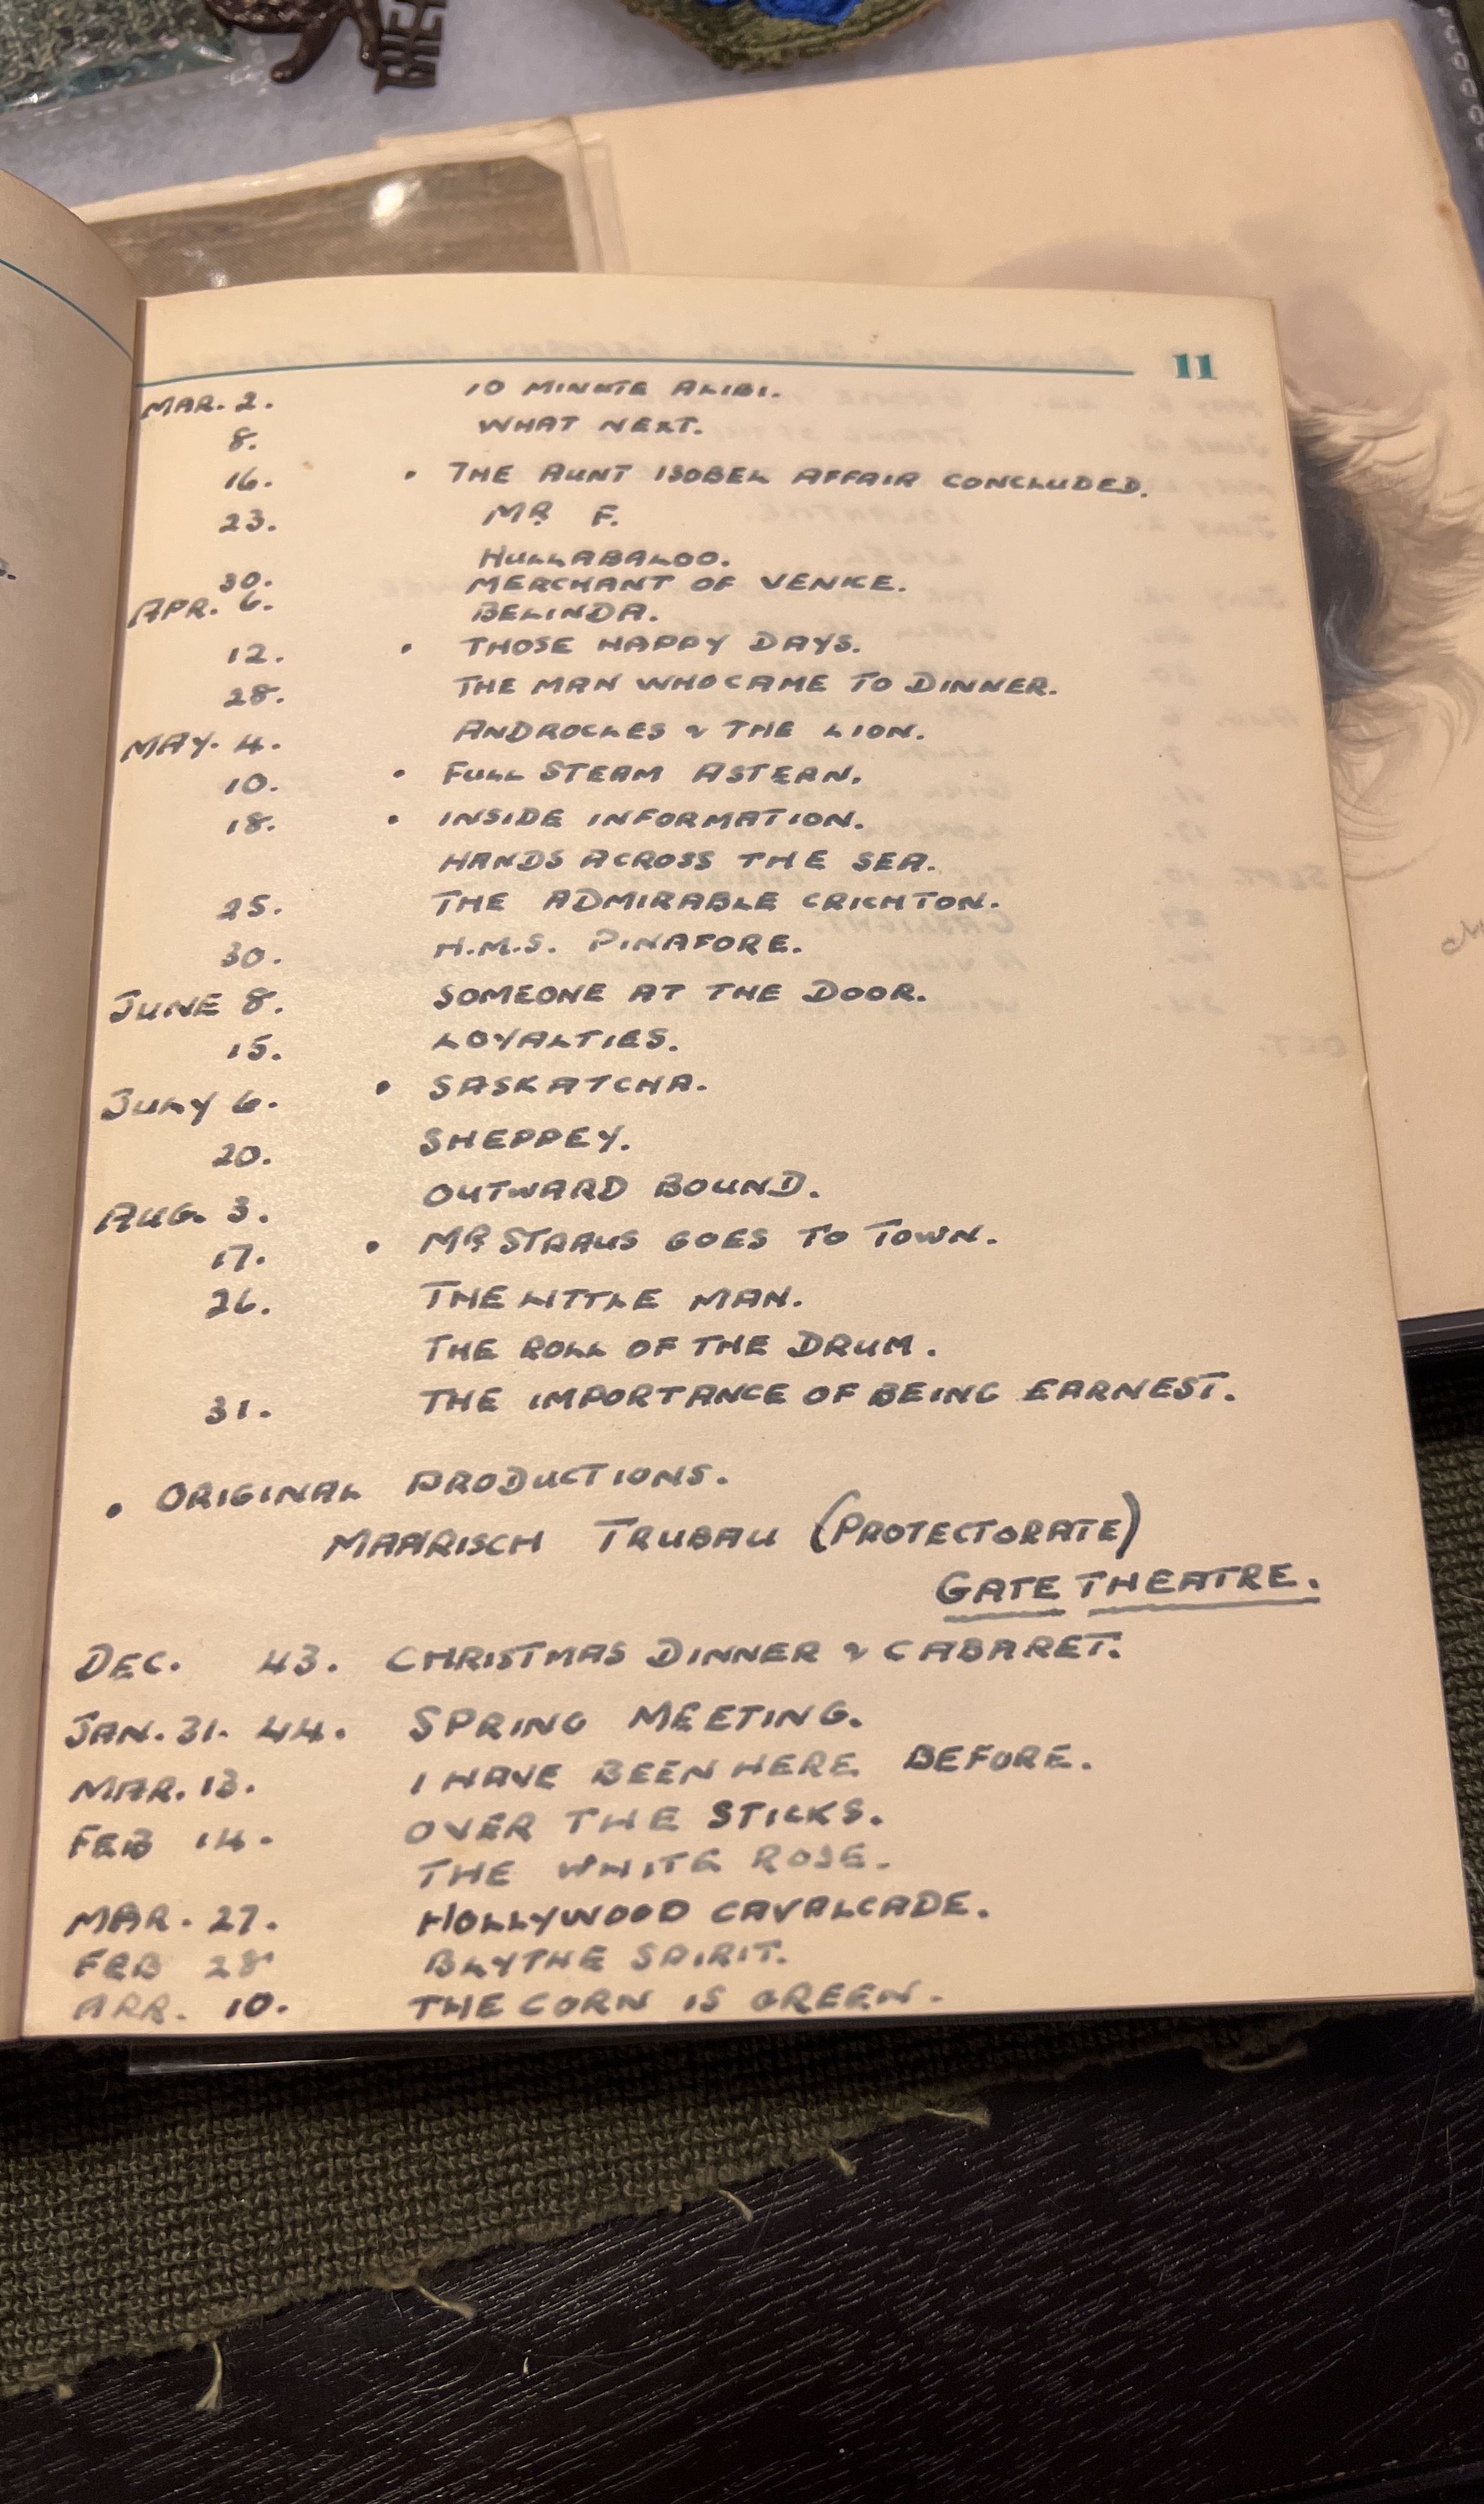 11
MAR. 2. 10 MINUTE ALIBI.
8. WHAT NEXT.
16. • THE AUNT ISOBEL AFFAIR CONCLUDED.
23. MR. F.
HULLABALOO.
30. MERCHANT OF VENICE.
APR. 6. BELINDA.
12. • THOSE HAPPY DAYS.
28. THE MAN WHO CAME TO DINNER.
MAY. 4. ANDROCLES & THE LION.
10. • FULL STEAM ASTERN.
18. • INSIDE INFORMATION.
HANDS ACROSS THE SEA.
25. THE ADMIRABLE CRICHTON.
30. H.M.S. PINAFORE.
JUNE 8. SOMEONE AT THE DOOR.
15. LOYALTIES.
JULY 6. • SASKATCHA.
20. SHEPPEY.
AUG. 3. OUTWARD BOUND.
17. • MR. STRAUS GOES TO TOWN.
26. THE LITTLE MAN.
THE ROLL OF THE DRUM.
31. THE IMPORTANCE OF BEING EARNEST.
• ORIGINAL PRODUCTIONS.
MAARISCH TRUBAU (PROTECTORATE)
GATE THEATRE.
DEC. 43. CHRISTMAS DINNER & CABARET.
JAN. 31. 44. SPRING MEETING.
MAR. 13. I HAVE BEEN HERE BEFORE.
FEB 14. OVER THE STICKS.
THE WHITE ROSE.
MAR. 27. HOLLYWOOD CAVALCADE.
FEB 28 BLYTHE SPIRIT.
APR. 10. THE CORN IS GREEN.